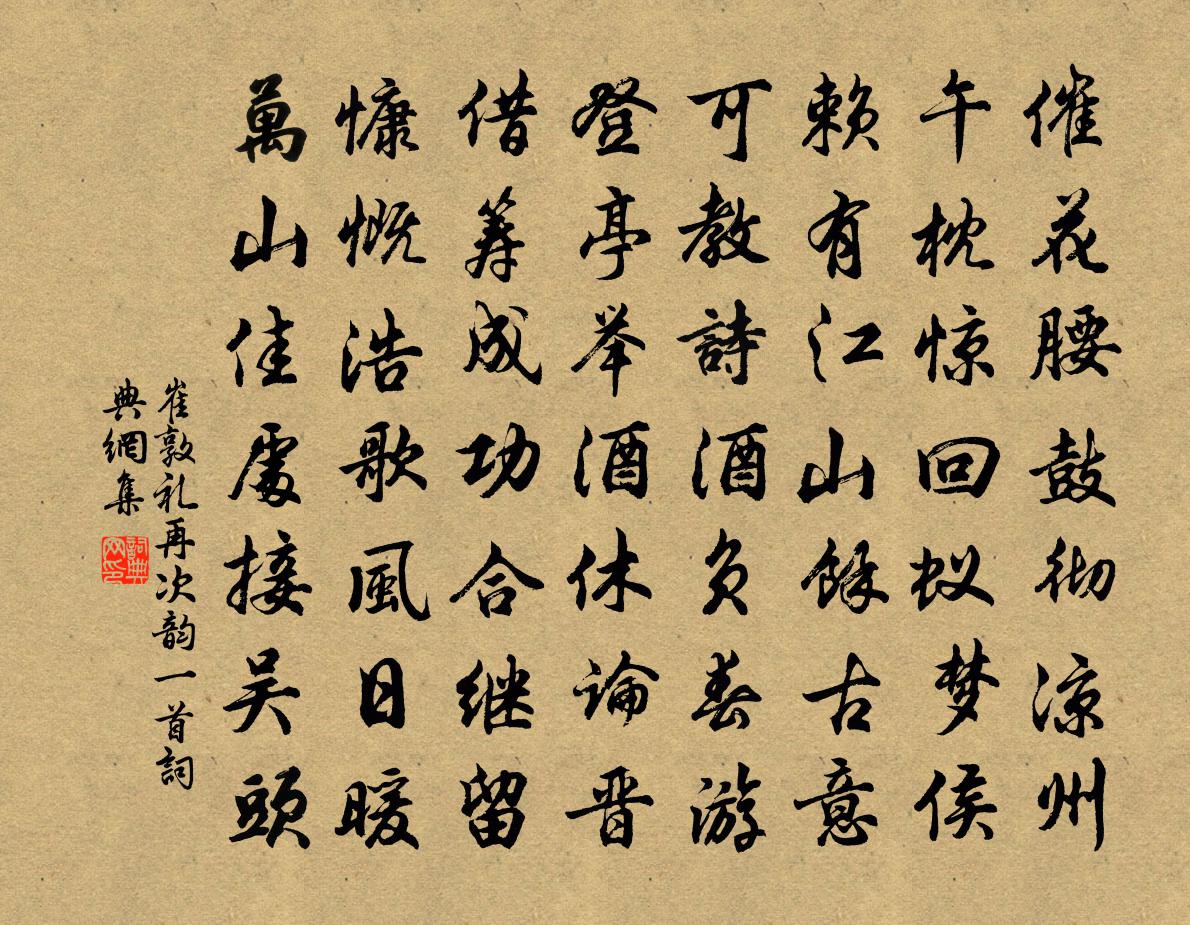 催花腰鼓彻凉州
午枕惊回蚁梦侯
赖有江山馀古意
可教詩酒负春游
登亭举酒休論晋
借筹成功合继留
慷慨浩歌風日暖
萬山佳處接吴頭
崔敦礼再次韵一首詞
典網集
詞典
网印